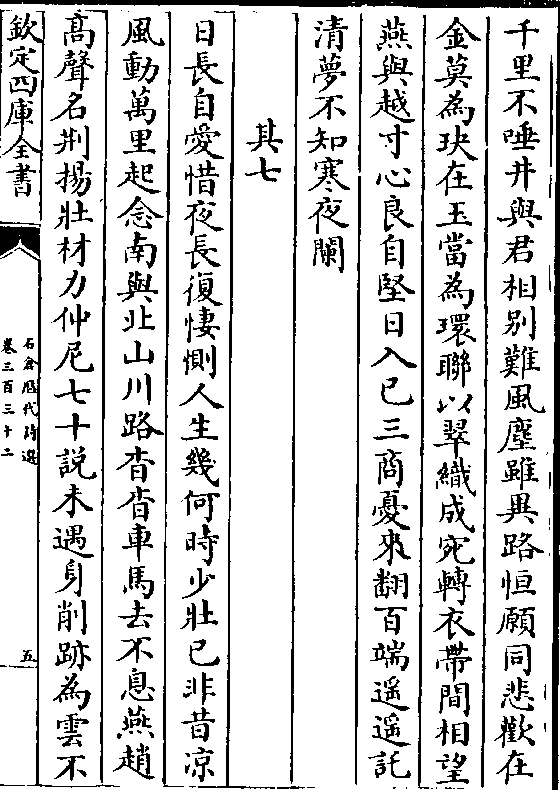 千里不唾井與君相别難風塵雖異路恒願同悲歡在
金莫為玦在玉當為環聯以翠織成宛轉衣帶間相望
燕與越寸心良自堅日入已三商憂來翻百端遥遥託
清夢不知寒夜闌
其七
日長自愛惜夜長復悽惻人生幾何時少壯已非昔凉
風動萬里起念南與北山川路杳杳車馬去不息燕趙
髙聲名荆揚壯材力仲尼七十說未遇身削跡為雲不
欽定四庫全書
石倉歴代詩選
卷三百三十二
五